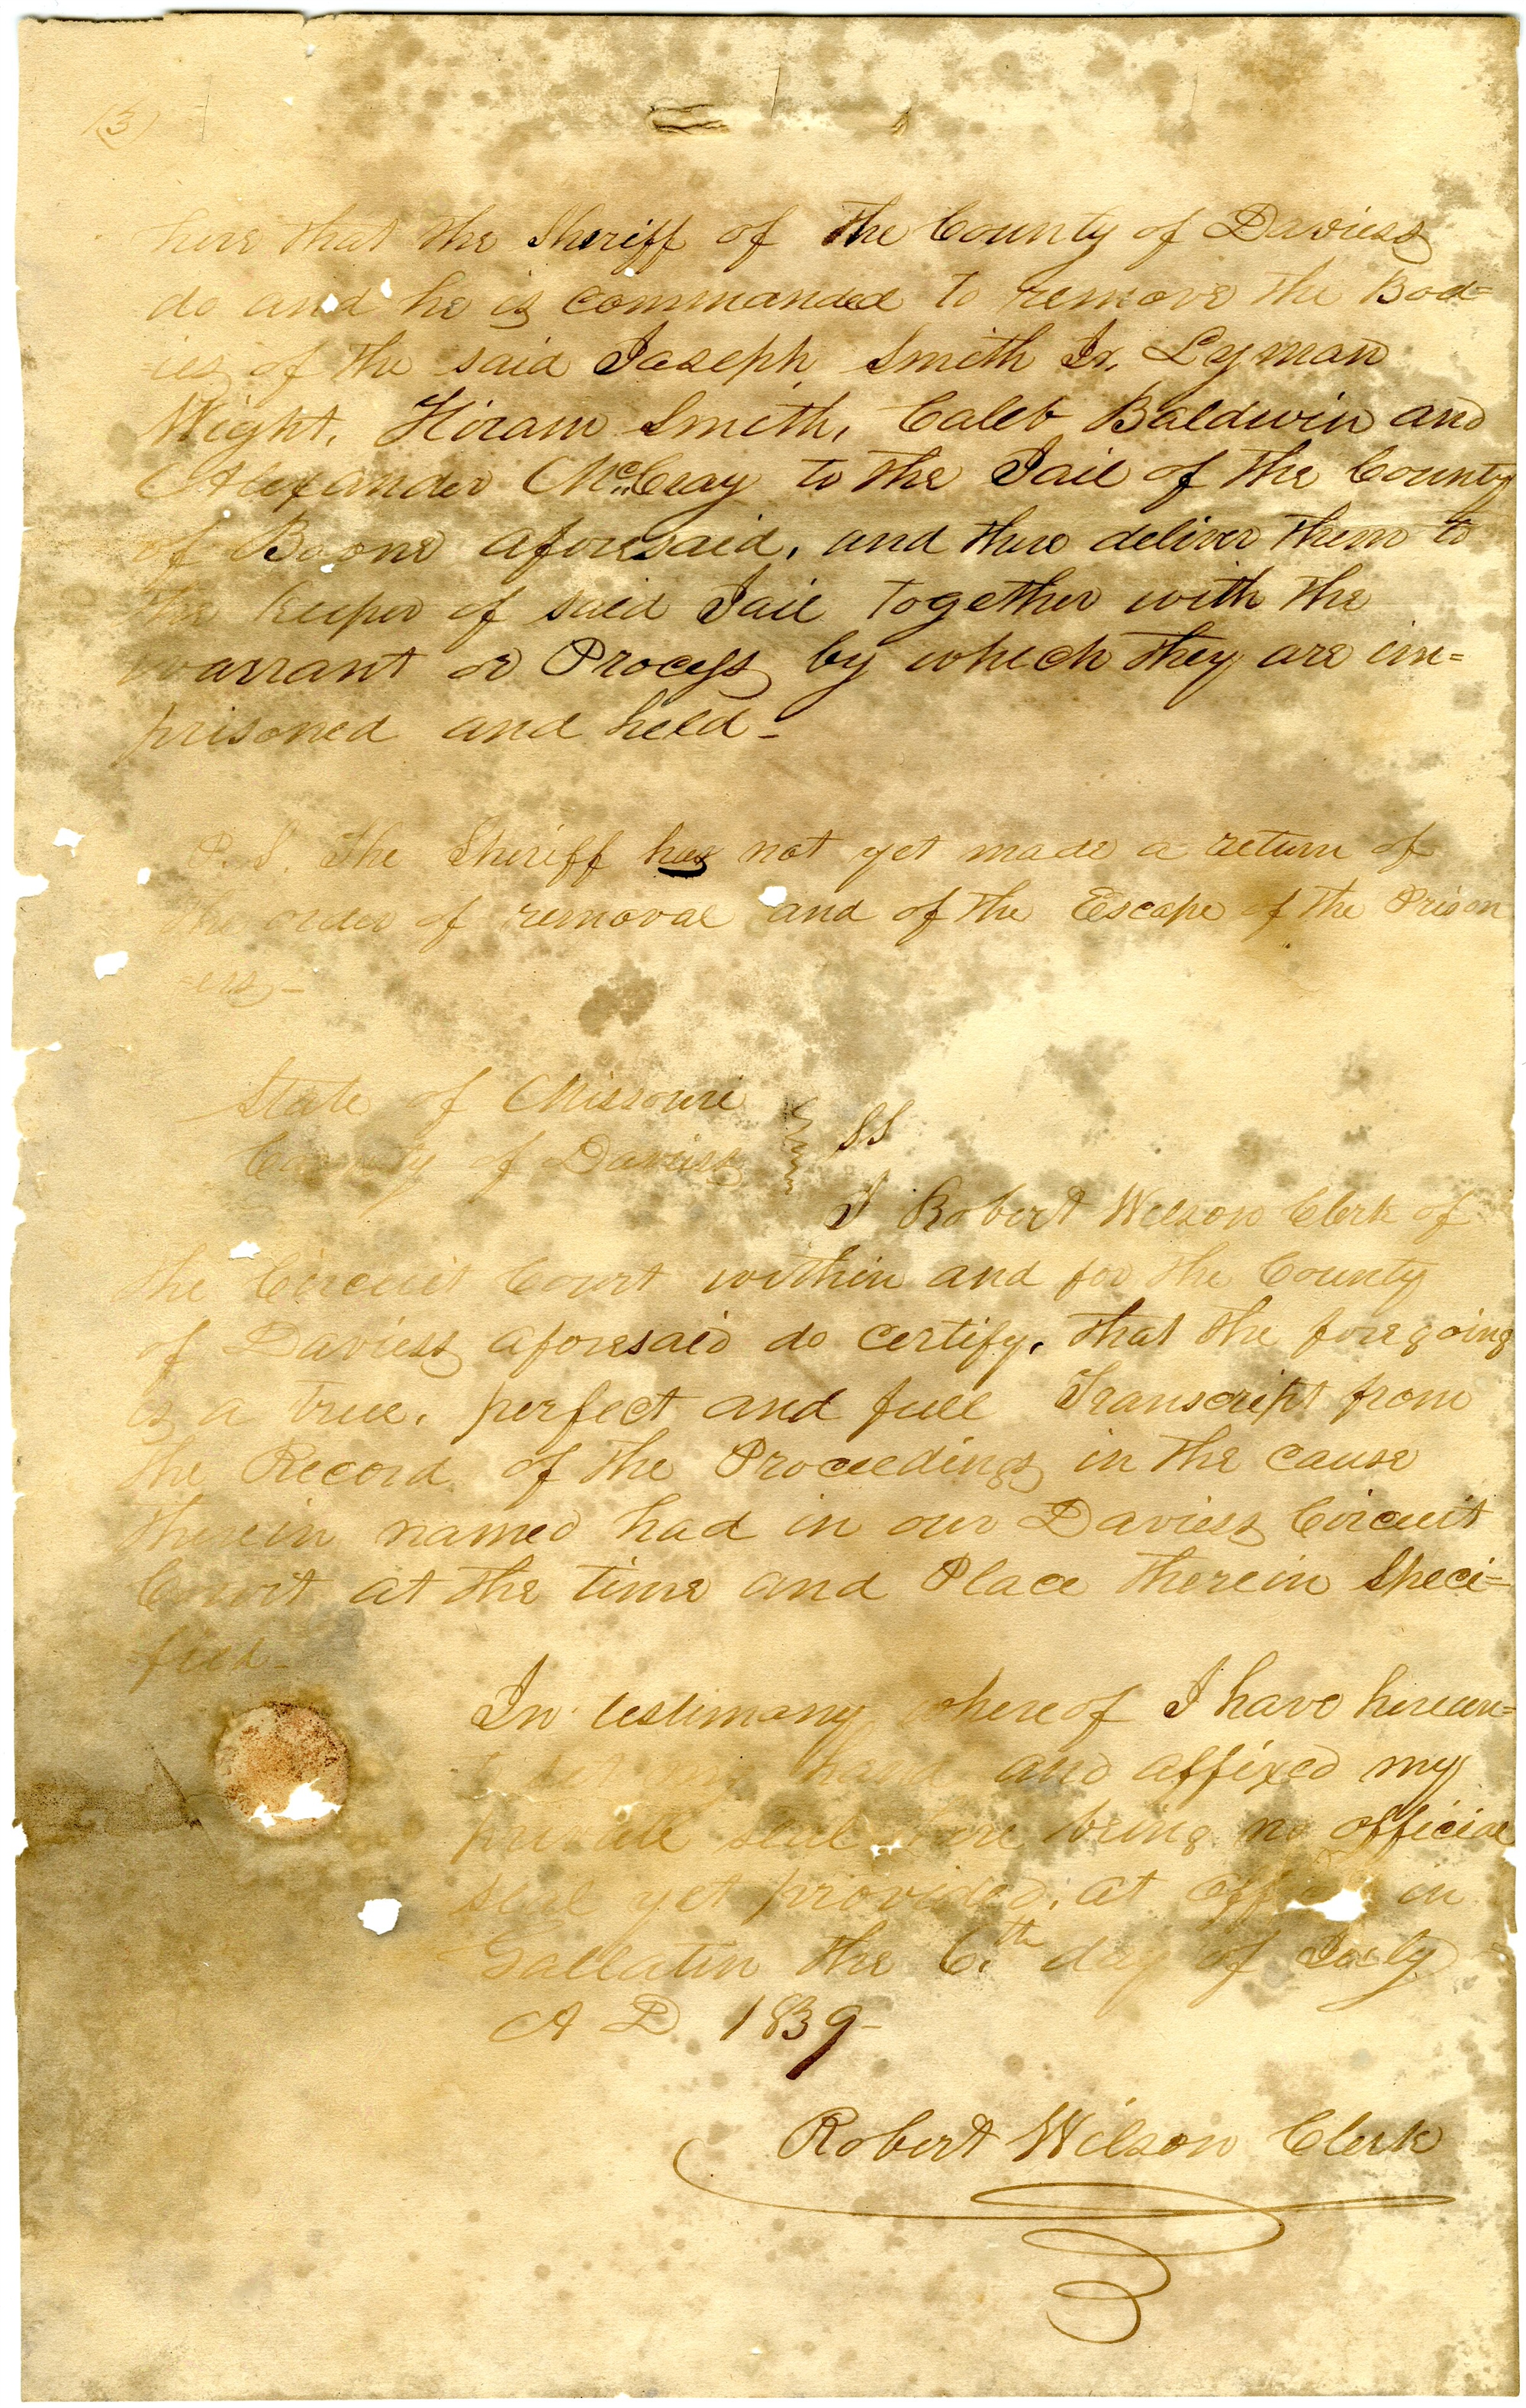 (3)
here that the Sheriff of the County of Daviess
do and he is commanded to remove the Bod=
=ies of the said Joseph Smith Jr, Lyman
Wight, Hiram Smith, Caleb Baldwin and
Alexander McCray to the Jail of the County
of Boone aforesaid, and there deliver them to
the keeper of said Jail together with the
warrant or Process by which they are im=
prisoned and held_
P.S. The Sheriff has not yet made a return of
the order of removal and of the Escape of the Prison
=ers_
State of Missouri
County of Daviess } SS
I Robert Wilson Clerk of
the Circuit Court within and for the County
of Daviess aforesaid do certify, that the foregoing
is a true, perfect and full Transcript from
the Record of the Proceedings in the cause
therein named had in our Daviess Circuit
Court at the time and Place therein Speci=
fied_
In testimony whereof I have hereun=
to set my hand and affixed my
private seal there being no official
seal yet provided, at office in
Gallatin the 6.th day of July
A D 1839_
Robert Wilson Clerk